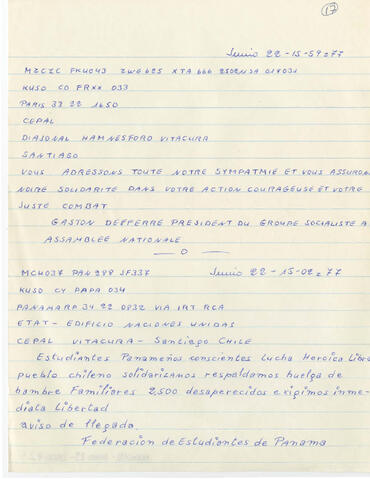 17
Junio 22-15-59=77
MZCZC FKU043 ZWG625 XTA666 2502NSA 017031
KUSO CO FRXX 033
PARIS 33 22 1650
CEPAL
DIAJONAL HAMNESFORD VITACURA
SANTIAGO
VOUS ADRESSONS TOUTE NOTRE SYMPATMIE ET VOUS ASSURONS
NOTRE SOLIDARITE DANS VOTRE ACTION COURAGEUSE ET VOTRE
JUSTE COMBAT
GASTON DEFFERRE PRESIDENT DU GROUPE SOCIALISTE A
ASSAMBLEE NATIONALE
— O —
MCH037 PAN288 SF337 Junio 22-15-02=77
KUSO CY PAPA 034
PANAMARP 34 22 0832 VIA IRT RCA
ETAT - EDIFICIO NACIONES UNIDAS
CEPAL VITACURA - Santiago CHILE
Estudiantes Panameños conscientes Lucha Heroica Libre
pueblo chileno solidarizamos respaldamos huelga de
hambre Familiares 2,500 desaparecidos exigimos inme-
diata Libertad
aviso de llegada
Federacion de Estudiantes de Panama